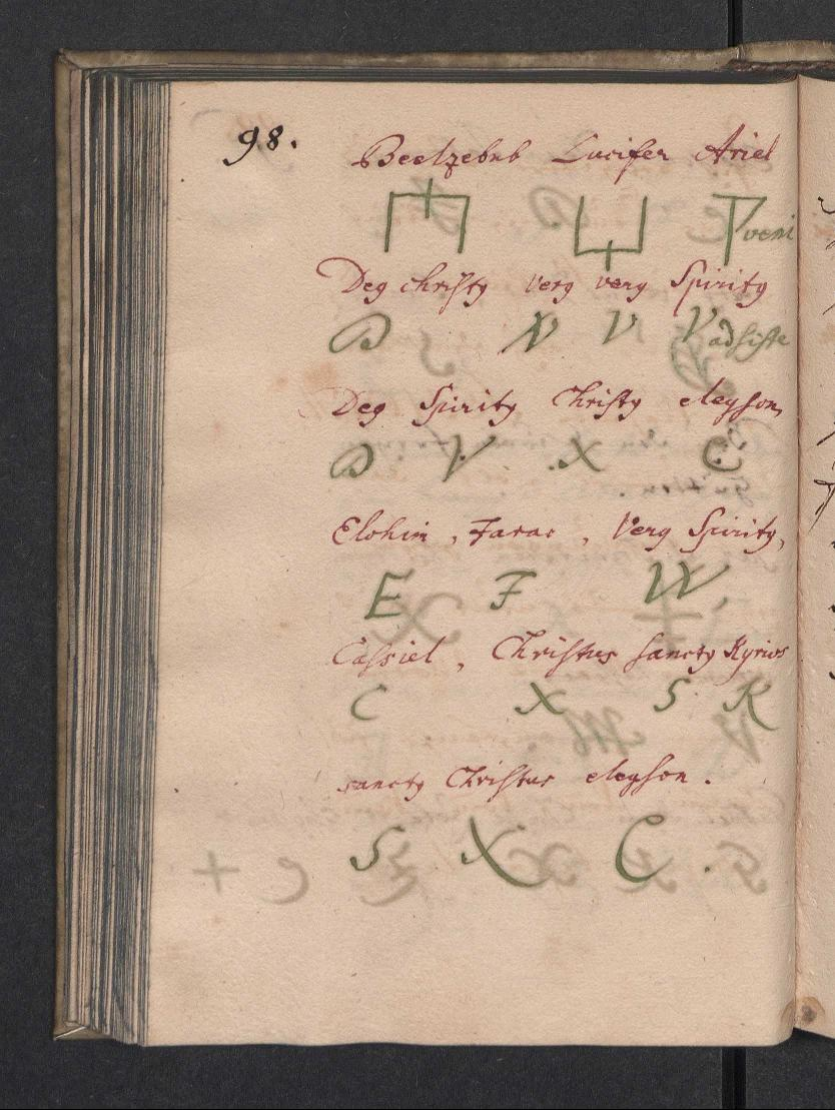 98.
Beelzebub Lucifer Ariel
veni
Deg christy Verg very Spirity
D N V V adsiste
Deg Spirity Christy eleyson,
D V X C
Elohim, Farac, Verg Spirity,
E F W
Cassiel, Christus sancty Kyrios
C X S K
sancty Christus eleyson.
S X C.